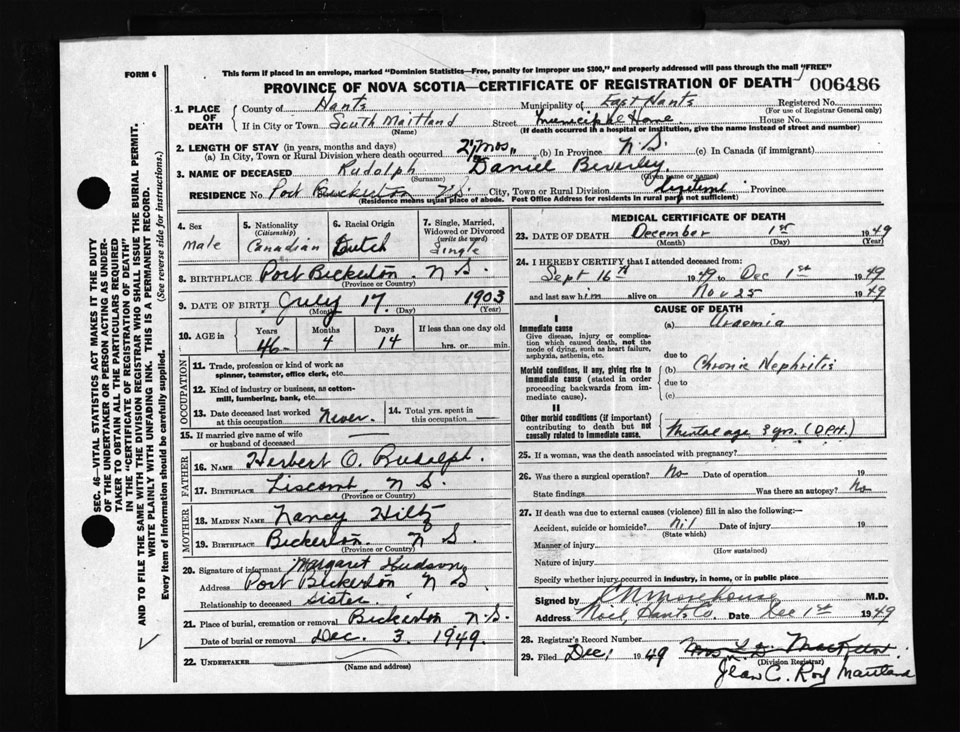 FORM 6
This form if placed in an envelope, marked "Dominion Statistics—Free, penalty for improper use $300," and properly addressed will pass through the mail "FREE"
PROVINCE OF NOVA SCOTIA—CERTIFICATE OF REGISTRATION OF DEATH 006486
1. PLACE OF DEATH
County of Hants Municipality of East Hants Registered No.
(For use of Registrar General only)
If in City or Town South Maitland Street Municipal Home House No.
(Name) (If death occurred in a hospital or institution, give the name instead of street and number)
2. LENGTH OF STAY (in years, months and days)
(a) In City, Town or Rural Division where death occurred 2½ mos (b) In Province N.S. (c) In Canada (if immigrant)
3. NAME OF DECEASED Rudolph Daniel Beverley
(Surname) (Given name or names)
RESIDENCE No. Port Bickerton N.S. City, Town or Rural Division Province
(Residence means usual place of abode. Post Office Address for residents in rural parts not sufficient)
4. Sex
Male
5. Nationality
(Citizenship)
Canadian
6. Racial Origin
Dutch
7. Single, Married, Widowed or Divorced
(write the word)
Single
8. BIRTHPLACE Port Bickerton. N S.
(Province or Country)
9. DATE OF BIRTH July 17 1903
(Month) (Day) (Year)
10. AGE in Years Months Days If less than one day old
46 4 14 hrs. or min.
OCCUPATION
11. Trade, profession or kind of work as spinner, teamster, office clerk, etc.
12. Kind of industry or business, as cotton-mill, lumbering, bank, etc.
13. Date deceased last worked at this occupation Never.
14. Total yrs. spent in this occupation —
15. If married give name of wife or husband of deceased —
FATHER
16. NAME Herbert O. Rudolph.
17. BIRTHPLACE Liscomb, N S.
(Province or Country)
MOTHER
18. MAIDEN NAME Nancy Hiltz
19. BIRTHPLACE Bickerton. N S.
(Province or Country)
20. Signature of informant Margaret Hudson,
Address Port Bickerton N S.
Relationship to deceased Sister.
21. Place of burial, cremation or removal Bickerton N.S.
Date of burial or removal Dec. 3. 1949.
22. UNDERTAKER
(Name and address)
MEDICAL CERTIFICATE OF DEATH
23. DATE OF DEATH December 1st 1949
(Month) (Day) (Year)
24. I HEREBY CERTIFY that I attended deceased from:
Sept 16th 1949 to Dec 1st 1949
and last saw him alive on Nov 25 1949
CAUSE OF DEATH
I
Immediate cause
Give disease, injury or complication which caused death, not the mode of dying, such as heart failure, asphyxia, asthenia, etc.
(a) Uraemia
due to
Morbid conditions, if any, giving rise to immediate cause (stated in order proceeding backwards from immediate cause).
(b) Chronic Nephritis
due to
(c)
II
Other morbid conditions (if important) contributing to death but not causally related to immediate cause.
Mental age 3 yrs. (D.P.H.)
25. If a woman, was the death associated with pregnancy?
26. Was there a surgical operation? No Date of operation 19
State findings Was there an autopsy? No
27. If death was due to external causes (violence) fill in also the following:—
Accident, suicide or homicide? nil Date of injury 19
(State which)
Manner of injury
(How sustained)
Nature of injury
Specify whether injury occurred in industry, in home, or in public place
Signed by Morehouse M.D.
Address Noel, Hants Co. Date Dec 1st 1949
28. Registrar's Record Number
29. Filed Dec 1 1949
(Division Registrar)
Jean C. Roy Maitland
SEC. 46—VITAL STATISTICS ACT MAKES IT THE DUTY
OF THE UNDERTAKER OR PERSON ACTING AS UNDER-
TAKER TO OBTAIN ALL THE PARTICULARS REQUIRED
IN THE "CERTIFICATE OF REGISTRATION OF DEATH"
AND TO FILE THE SAME WITH THE DIVISION REGISTRAR WHO SHALL ISSUE THE BURIAL PERMIT.
WRITE PLAINLY WITH UNFADING INK. THIS IS A PERMANENT RECORD.
Every item of information should be carefully supplied. (See reverse side for instructions.)